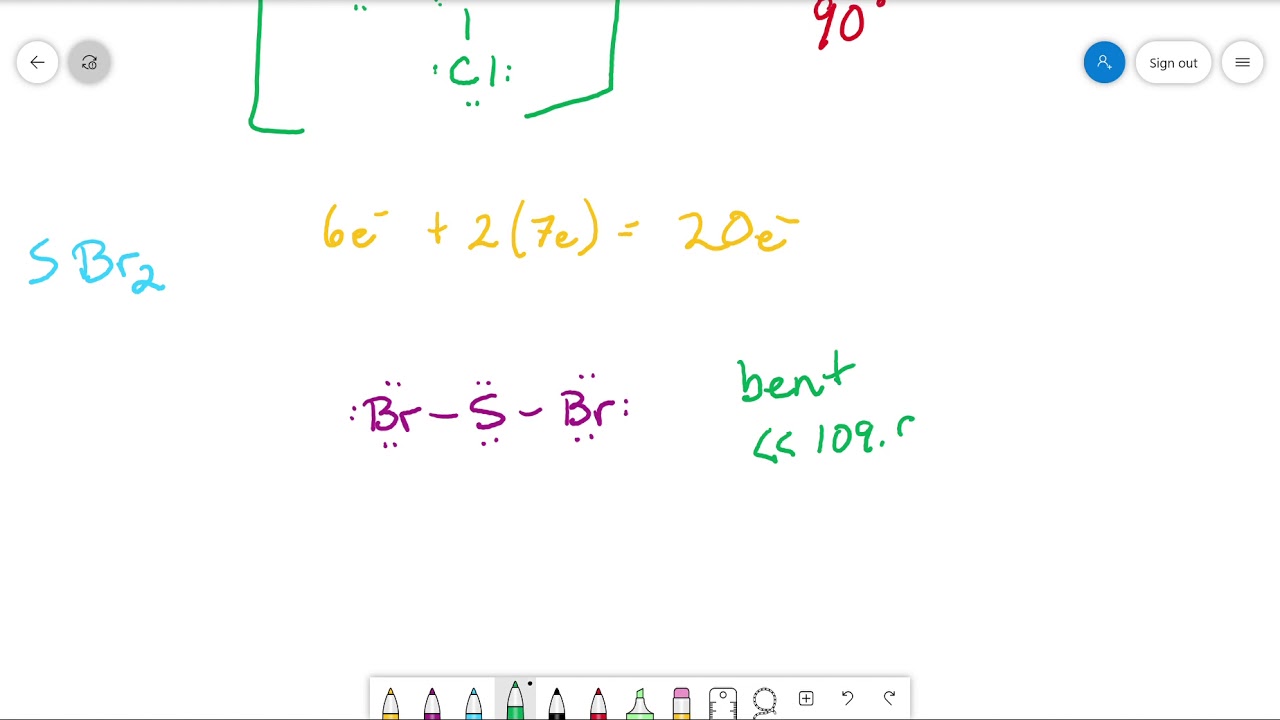 90°
:Cl:
Sign out
6e⁻ + 2(7e) = 20e⁻
SBr₂
:Br-S-Br:
bent
<<109.